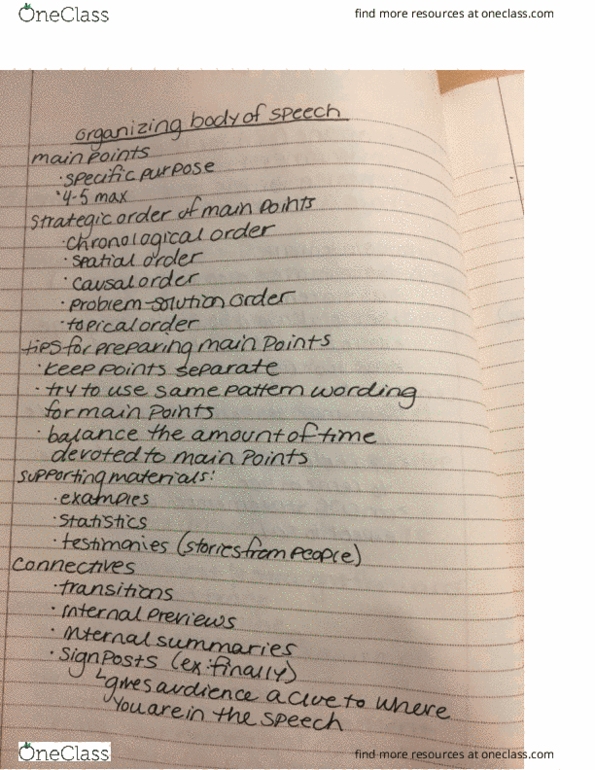 OneClass
find more resources at oneclass.com
organizing body of speech
main points
· specific purpose
· 4-5 max
strategic order of main points
· chronological order
· spatial order
· causal order
· problem-solution order
· topical order
tips for preparing main points
· keep points separate
· try to use same pattern wording
for main points
· balance the amount of time
devoted to main points
supporting materials:
· examples
· statistics
· testimonies (stories from people)
connectives
· transitions
· internal previews
· internal summaries
· signposts (ex: finally)
↳ gives audience a clue to where
you are in the speech
OneClass
find more resources at oneclass.com